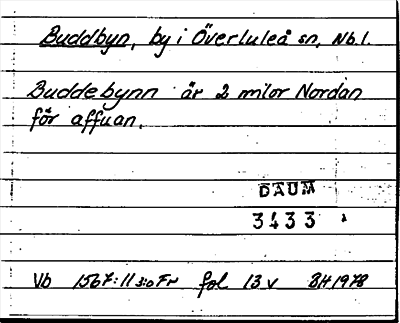 Buddbyn, by i Överluleå sn, Nb.l.
Buddebynn är 2 milor Nordan
för affuan.
DAUM
3433
Vb 1567:11 s:o Fr fol 13 v BH 1978